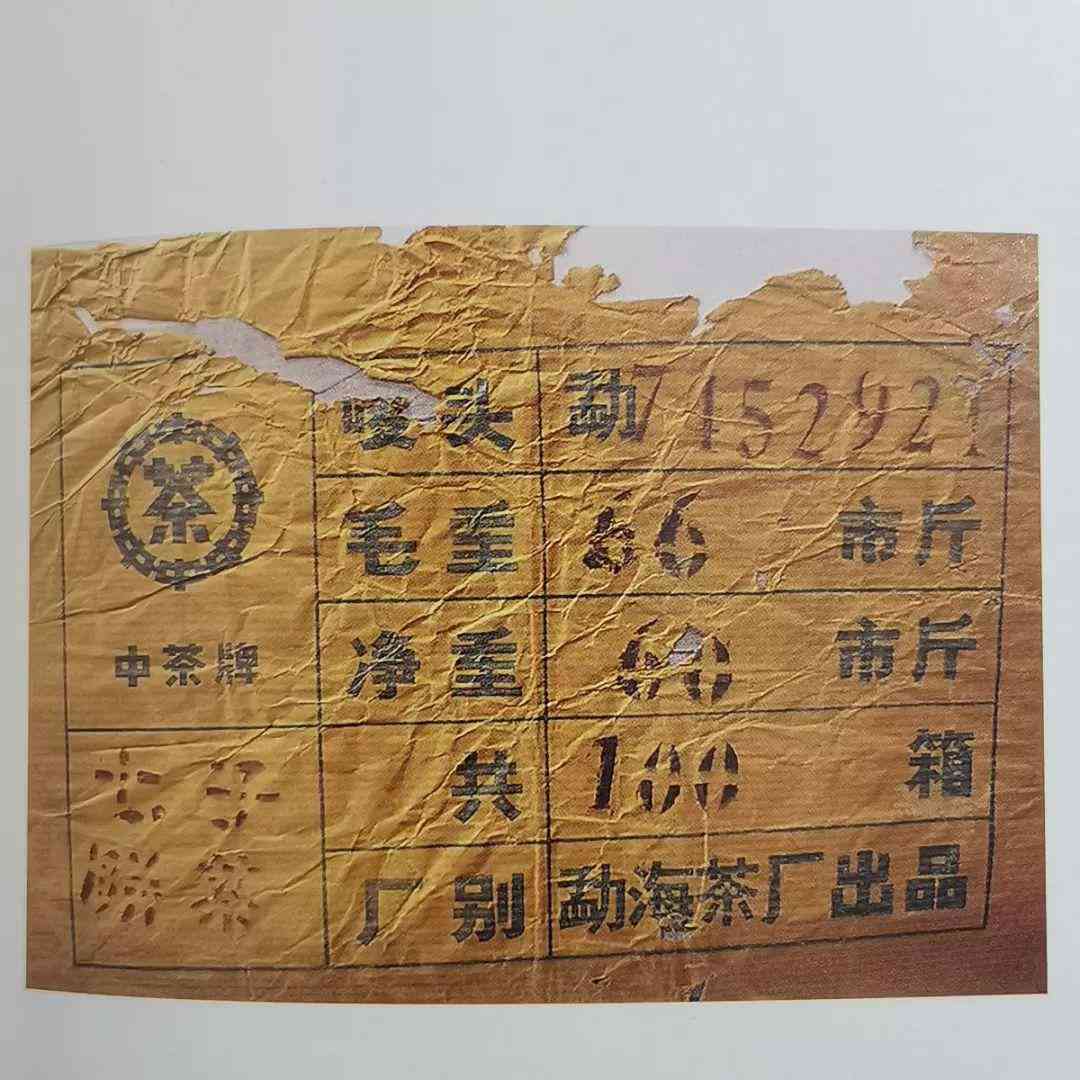 茶
中茶牌
七子
饼茶
唛头 勐7452921
毛重 66 市斤
净重 60 市斤
共 100 箱
厂别 勐海茶厂出品